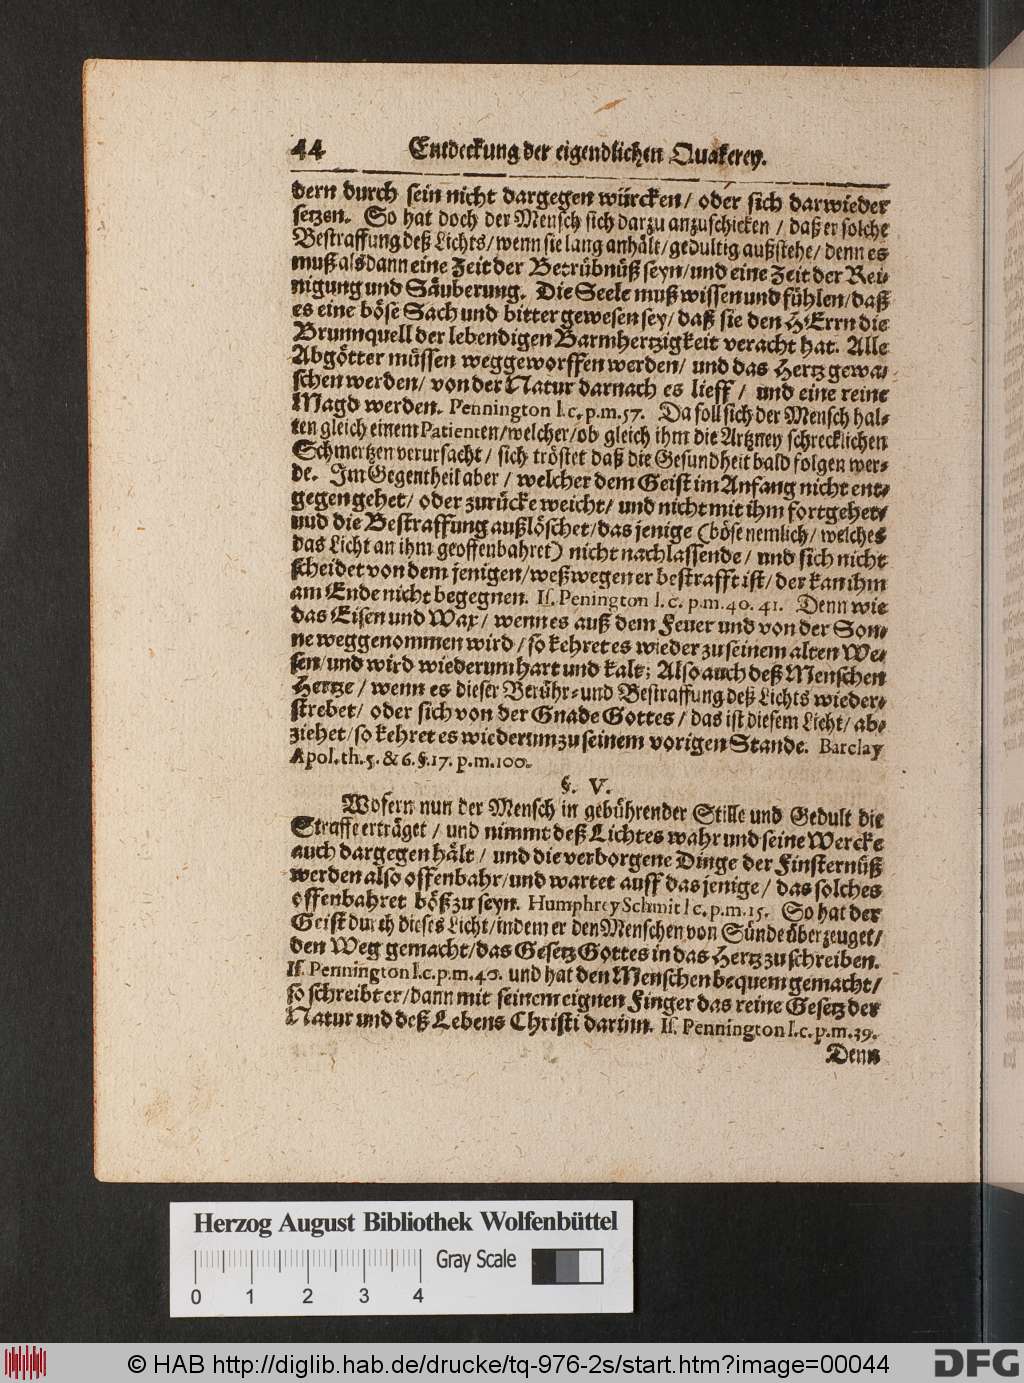 44 Entdeckung der eigendlichen Quakerey.
dern durch sein nicht dargegen würcken / oder sich darwieder
setzen. So hat doch der Mensch sich darzu anzuschicken / daß er solche
Bestraffung deß Lichts / wenn sie lang anhält / gedultig außstehe / denn es
muß alsdann eine Zeit der Betrübnüß seyn / und eine Zeit der Rei-
nigung und Säuberung. Die Seele muß wissen und fühlen / daß
es eine böse Sach und bitter gewesen sey / daß sie den HErrn die
Brunnquell der lebendigen Barmhertzigkeit veracht hat. Alle
Abgötter müssen weggeworffen werden / und das Hertz gewa-
schen werden / von der Natur darnach es lieff / und eine reine
Magd werden. Pennington l. c. p. m. 57. Da soll sich der Mensch hal-
ten gleich einem Patienten / welcher / ob gleich ihm die Artzney schrecklichen
Schmertzen verursacht / sich tröstet daß die Gesundheit bald folgen wer-
de. Im Gegentheil aber / welcher dem Geist im Anfang nicht ent-
gegen gehet / oder zurücke weicht / und nicht mit ihm fortgehet /
und die Bestraffung außlöschet / das jenige (böse nemlich / welches
das Licht an ihm geoffenbahret) nicht nachlassende / und sich nicht
scheidet von dem jenigen / weßwegen er bestrafft ist / der kan ihm
am Ende nicht begegnen. Is. Penington l. c. p. m. 40. 41. Denn wie
das Eisen und Wax / wenn es auß dem Feuer und von der Son-
ne weggenommen wird / so kehret es wieder zu seinem alten We-
sen / und wird wiederum hart und kalt; Also auch deß Menschen
Hertze / wenn es dieser Berühr- und Bestraffung deß Lichts wieder-
strebet / oder sich von der Gnade Gottes / das ist diesem Licht / ab-
ziehet / so kehret es wiederum zu seinem vorigen Stande. Barclay
Apol. th. 5. & 6. §. 17. p. m. 100.
§. V.
Wofern nun der Mensch in gebührender Stille und Gedult die
Straffe erträget / und nimmt deß Lichtes wahr und seine Wercke
auch dargegen hält / und die verborgene Dinge der Finsternüß
werden also offenbahr / und wartet auff das jenige / das solches
offenbahret böß zu seyn. Humphrey Schmit l c. p. m. 15. So hat der
Geist durch dieses Licht / indem er den Menschen von Sünde überzeuget /
den Weg gemacht / das Gesetz Gottes in das Hertz zu schreiben.
Is. Pennington l. c. p. m. 40. und hat den Menschen bequem gemacht /
so schreibt er / dann mit seinem eignen Finger das reine Gesetz der
Natur und deß Lebens Christi darinn. Is. Pennington l. c. p. m. 39.
Denn
Herzog August Bibliothek Wolfenbüttel
Gray Scale
0 1 2 3 4
© HAB http://diglib.hab.de/drucke/tq-976-2s/start.htm?image=00044
DFG